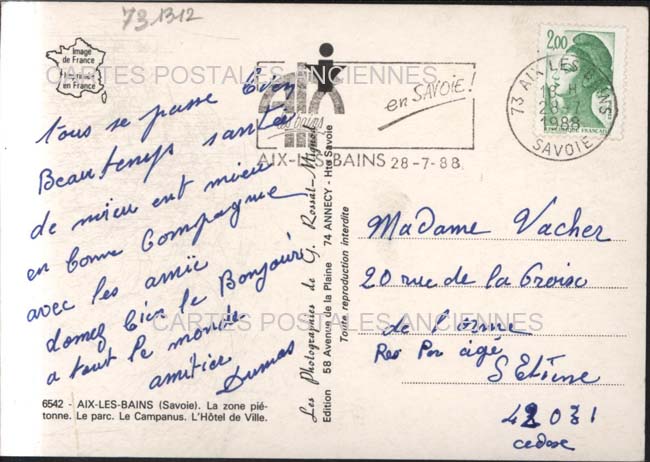 73 1312
Image
de France
Imprimée
en France
CARTES POSTALES ANCIENNES
AIX
les bains
en SAVOIE!
AIX-LES-BAINS 28-7-88
2,00
73 AIX LES BAINS
18 H
28-7
1988
SAVOIE
RÉPUBLIQUE FRANÇAISE
tous se passe bien
Beautemps santé
de mieu ent mieu
en bonne Compagnie
avec les amie
donnez bien le Bonjour
a tout le monde
amitier
Dumas
6542 - AIX-LES-BAINS (Savoie). La zone pié-
tonne. Le parc. Le Campanus. L'Hôtel de Ville.
Les Photographies de G. Rossat-Mignod
Edition 58 Avenue de la Plaine 74 ANNECY - Hte Savoie
Toute reproduction interdite
Madame Vacher
20 rue de la Croix
de l'orme
Res Per agé
S Etiene
42031
cedex
CARTES POSTALES ANCIENNES